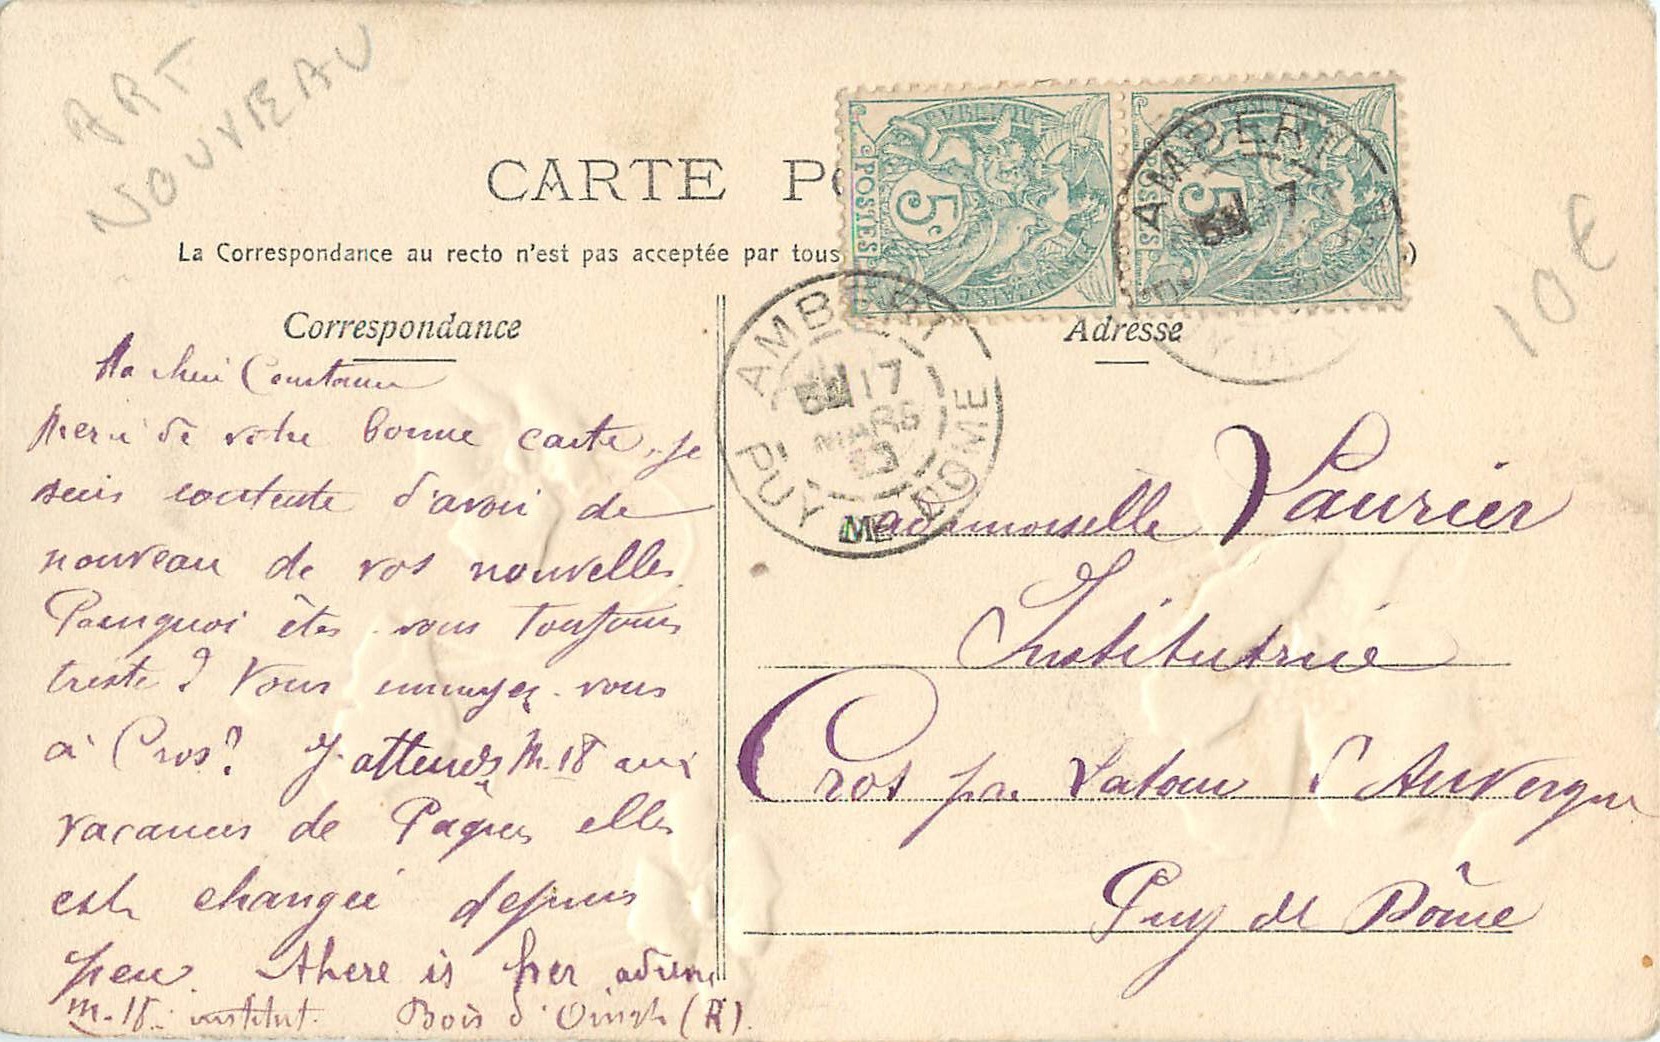 ART
NOUVEAU
10 €
CARTE PO
La Correspondance au recto n'est pas acceptée par tous
POSTES 5c
POSTES 5c
AMBERT
5E 17
AMBERT
5E 17
MARS
PUY DE DOME
Correspondance
Adresse
Ma chère Constance
Merci de votre bonne carte, je
suis contente d'avoir de
nouveau de vos nouvelles
Pourquoi êtes-vous toujours
triste ? Vous ennuyez-vous
à Cros ? J'attends M. 18 aux
vacances de Pâques elle
est changée depuis
peu. There is her adress
M. 18 institut. Bois d'Oingh (R).
Mademoiselle Laurier
Institutrice
Cros par Latour d'Auvergne
Puy de Dôme